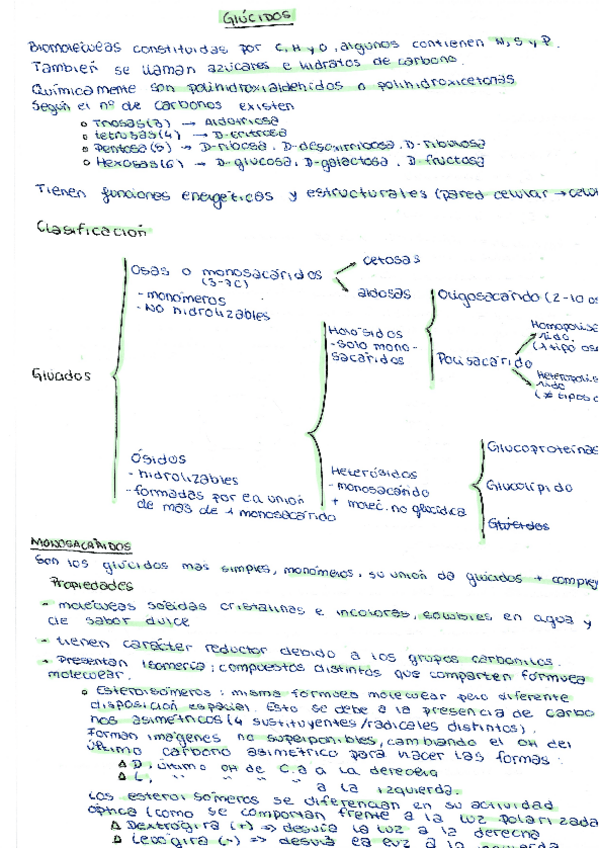 GLÚCIDOS
Biomoléculas constituidas por C, H y O, algunos contienen N, S y P.
También se llaman azúcares e hidratos de carbono.
Químicamente son polihidroxialdehidos o polihidroxicetonas
Según el nº de carbonos existen
o Triosas(3) → Aldotriosa
o tetrosas(4) → D-eritrosa
o Pentosa(5) → D-ribosa, D-desoxirribosa, D-ribulosa
o Hexosas(6) → D-glucosa, D-galactosa, D-fructosa
Tienen funciones energéticas y estructurales (pared celular → celu
Clasificación
Glúcidos
Osas o monosacáridos
(3-7C)
- monómeros
- No hidrolizables
cetosas
aldosas
Ósidos
- hidrolizables
- formadas por la unión
de mas de 1 monosacárido
Holósidos
- solo mono-
sacáridos
Oligosacárido (2-10 os
Polisacárido
Homopolisa
rido.
(1 tipo os
Heteropolis
ride
(≠ tipos o
Heterósidos
- monosacárido
+ molec. no glucídica
Glucoproteínas
Glucolípido
MONOSACÁRIDOS
Son los glúcidos mas simples, monómeros, su unión da glúcidos + comple
Propiedades
- moléculas sólidas cristalinas e incoloras, solubles en agua y
de sabor dulce
- tienen carácter reductor debido a los grupos carbonilos.
- Presentan Isomería: compuestos distintos que comparten fórmula
molecular.
o Esteroisómeros: misma formula molecular pero diferente
disposición espacial. Esto se debe a la presencia de carbo
nos asimétricos (4 sustituyentes/radicales distintos).
Forman imágenes no superponibles, cambiando el OH del
último carbono asimétrico para hacer las formas:
△ D, último OH de C.a a la derecha
△ L, " " " " a la izquierda.
Los esteroisómeros se diferencian en su actividad
óptica (como se comportan frente a la luz polarizada
△ Dextrógira (+) => desvía la luz a la derecha
△ Levógira (-) => desvía la luz a la izquierda